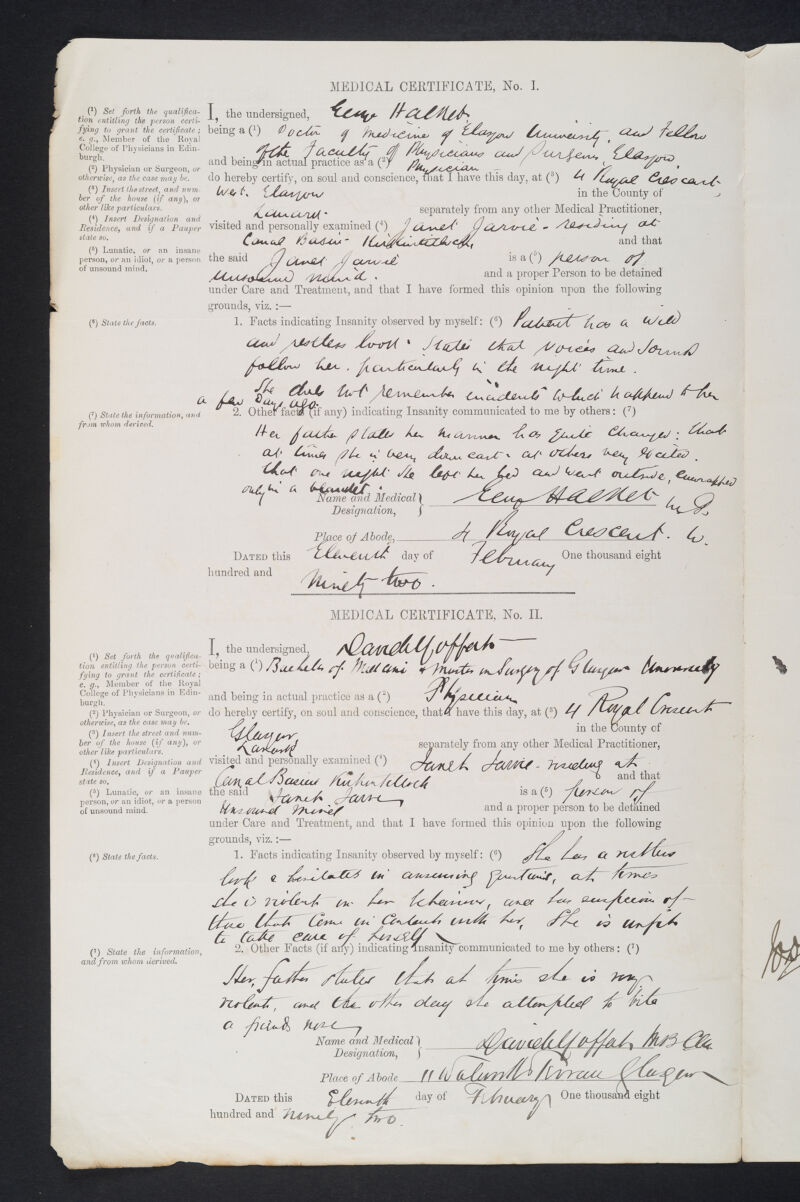 MEDICAL CERTIFICATE, No. I.
(1) Set forth the qualification entitling the person certifying to grant the certificate; e. g., Member of the Royal College of Physicians in Edinburgh.
(2) Physician or Surgeon, or otherwise, as the case may be.
(3) Insert the street, and number of the house (if any), or other like particulars.
(4) Insert Designation and Residence, and if a Pauper state so.
(5) Lunatic, or an insane person, or an idiot, or a person of unsound mind.
I, the undersigned, George Halket
being a (1) Doctor of Medicine of Glasgow University, and Fellow
of the Faculty of Physicians and Surgeons, Glasgow.
and being in actual practice as a (2) Physician
do hereby certify, on soul and conscience, that I have this day, at (3) 4 Royal Crescent,
West. Glasgow in the County of
Lanark. separately from any other Medical Practitioner,
visited and personally examined (4) Janet Jarvie - residing at
Canal Basin - Kirkintilloch, and that
the said Janet Jarvie is a (5) person of
unsound mind. and a proper Person to be detained
under Care and Treatment, and that I have formed this opinion upon the following
grounds, viz. :—
(6) State the facts.
1. Facts indicating Insanity observed by myself: (6) Patient has a wild
and restless look. States that voices and sounds
follow her, particularly in the night time.
She does not remember incidents which happened to her
a few days ago.
(7) State the information, and from whom derived.
2. Other facts (if any) indicating Insanity communicated to me by others: (7)
Her father states her manner has quite changed: that
at times she is very downcast - at others very excited.
that one night she left her bed and went outside, enwrapped
only in a blanket.
Name and Medical Designation, George Halket M.D.
Place of Abode, 4 Royal Crescent. W.
DATED this Eleventh day of February One thousand eight
hundred and ninety two.
MEDICAL CERTIFICATE, No. II.
(1) Set forth the qualification entitling the person certifying to grant the certificate; e. g., Member of the Royal College of Physicians in Edinburgh.
(2) Physician or Surgeon, or otherwise, as the case may be.
(3) Insert the street and number of the house (if any), or other like particulars.
(4) Insert Designation and Residence, and if a Pauper state so.
(5) Lunatic, or an insane person, or an idiot, or a person of unsound mind.
I, the undersigned, David Moffat
being a (1) Bachelor of Medicine & Master in Surgery of Glasgow University
and being in actual practice as a (2) Physician
do hereby certify, on soul and conscience, that I have this day, at (3) 4 Royal Crescent
Glasgow in the County of
Lanark separately from any other Medical Practitioner,
visited and personally examined (4) Janet Jarvie - residing at
Canal Basin Kirkintilloch and that
the said Janet Jarvie is a (5) person of
Unsound Mind and a proper person to be detained
under Care and Treatment, and that I have formed this opinion upon the following
grounds, viz. :—
(6) State the facts.
1. Facts indicating Insanity observed by myself: (6) She has a restless
look & hesitates in answering questions, at times
she is violent in her behaviour, and has suspicion of
those that come in contact with her, She is unfit
to take care of herself
(7) State the information, and from whom derived.
2. Other Facts (if any) indicating Insanity communicated to me by others: (7)
Her father states that at times she is very
violent, and the other day she attempted to bite
a friends nose
Name and Medical Designation, David Moffat M.B. C.M.
Place of Abode 11 Glasgow
DATED this Eleventh day of February One thousand eight
hundred and ninety two.